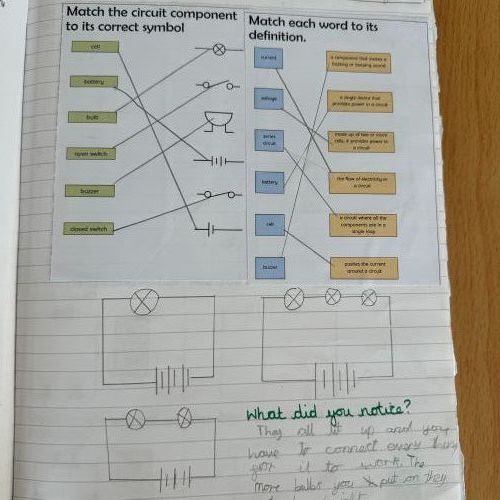 Match the circuit component
to its correct symbol
cell
battery
bulb
open switch
buzzer
closed switch
Match each word to its
definition.
current
voltage
series
circuit
battery
cell
buzzer
a component that makes a
buzzing or beeping sound
a single device that
provides power in a circuit
made up of two or more
cells, it provides power in
a circuit
the flow of electricity in
a circuit
a circuit where all the
components are in a
single loop
pushes the current
around a circuit
What did you notice?
They all lit up and you
have to connect every thing
for it to work. The
more bulbs you put on they